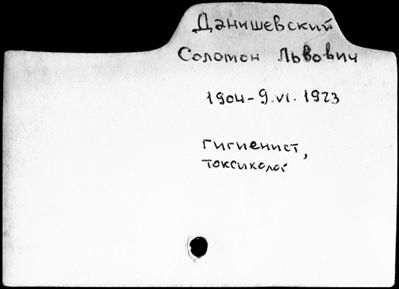 Данишевский
Соломон Львович
1904-9.VI.1973
гигиенист,
токсиколог